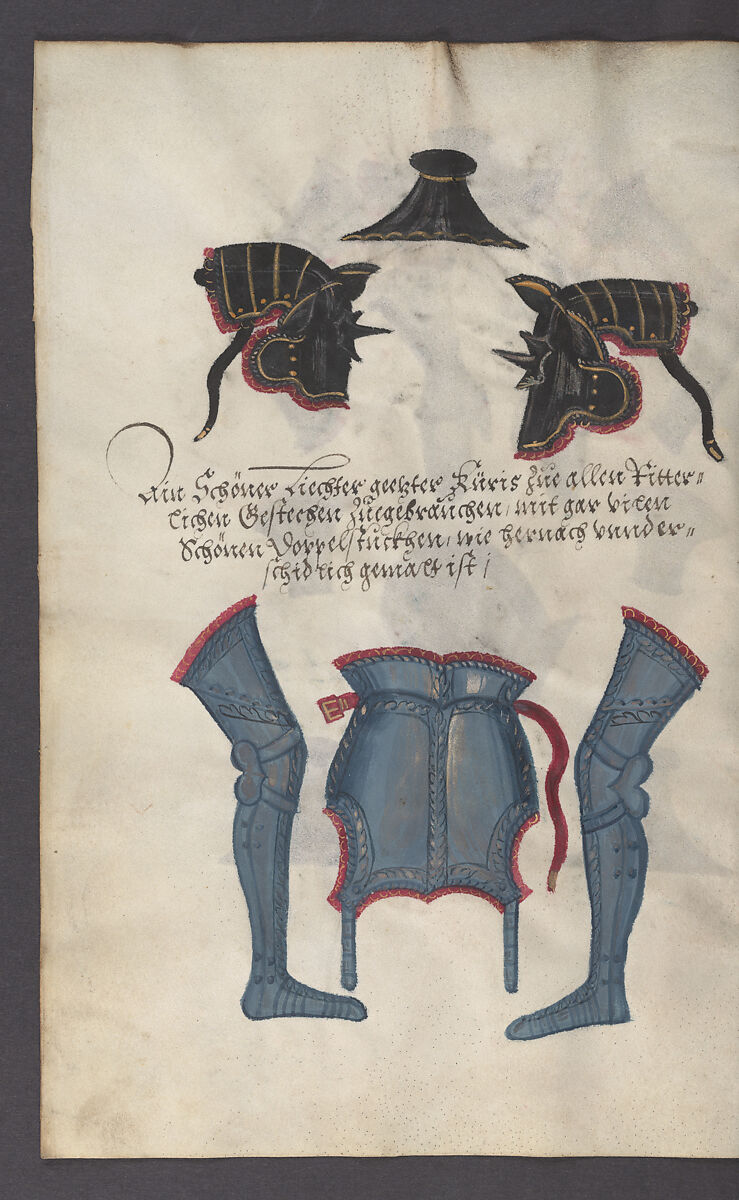 Ain Schöner Liechter geetzter Küris zue allen Ritter=
lichen Gestechen zuegebrauchen, mit gar vilen
Schönen Doppelstuckhen, wie hernach vnnder=
schidlich gemalt ist,